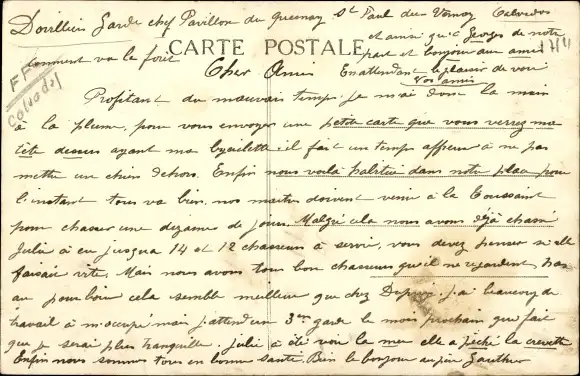 Dorillien Garde chef Pavillon du quesnay St Paul du Vernay Calvados
et ainsi qu'à Georges de notre
part et bonjour aux amis
CARTE POSTALE
comment va le foret
Cher Amis En attendant le plaisir de voir
Vos amis
FF
Calvados
Profitant du mauvais temps je m'ai donc la main
à la plume, pour vous envoyer une petite carte que vous verrez ma
tête dessus ayant ma il fait un temps affreux à ne pas
mettre un chien dehors. Enfin nous voilà habituée dans notre place pour
l'instant tous va bien, nos maitres doivent venir à la Toussaint
pour chasser une dizaine de jours. Malgré cela nous avons déjà chassé
Julia à eu jusqua 14 et 12 chasseurs à servir, vous devez penser si elle
faisait vite. Mais nous avons tous bon chasseurs qu'il ne regardent pas
au pourboire cela semble meilleur que chez j'ai beaucoup de
travail à m'occupé mais j'attend un 3em garde le mois prochain que fait
que je serai plus tranquille. Julia à été voir la mer elle a pêché la crevette
Enfin nous sommes tous en bonne santé. Bien le bonjour au père Gauthier